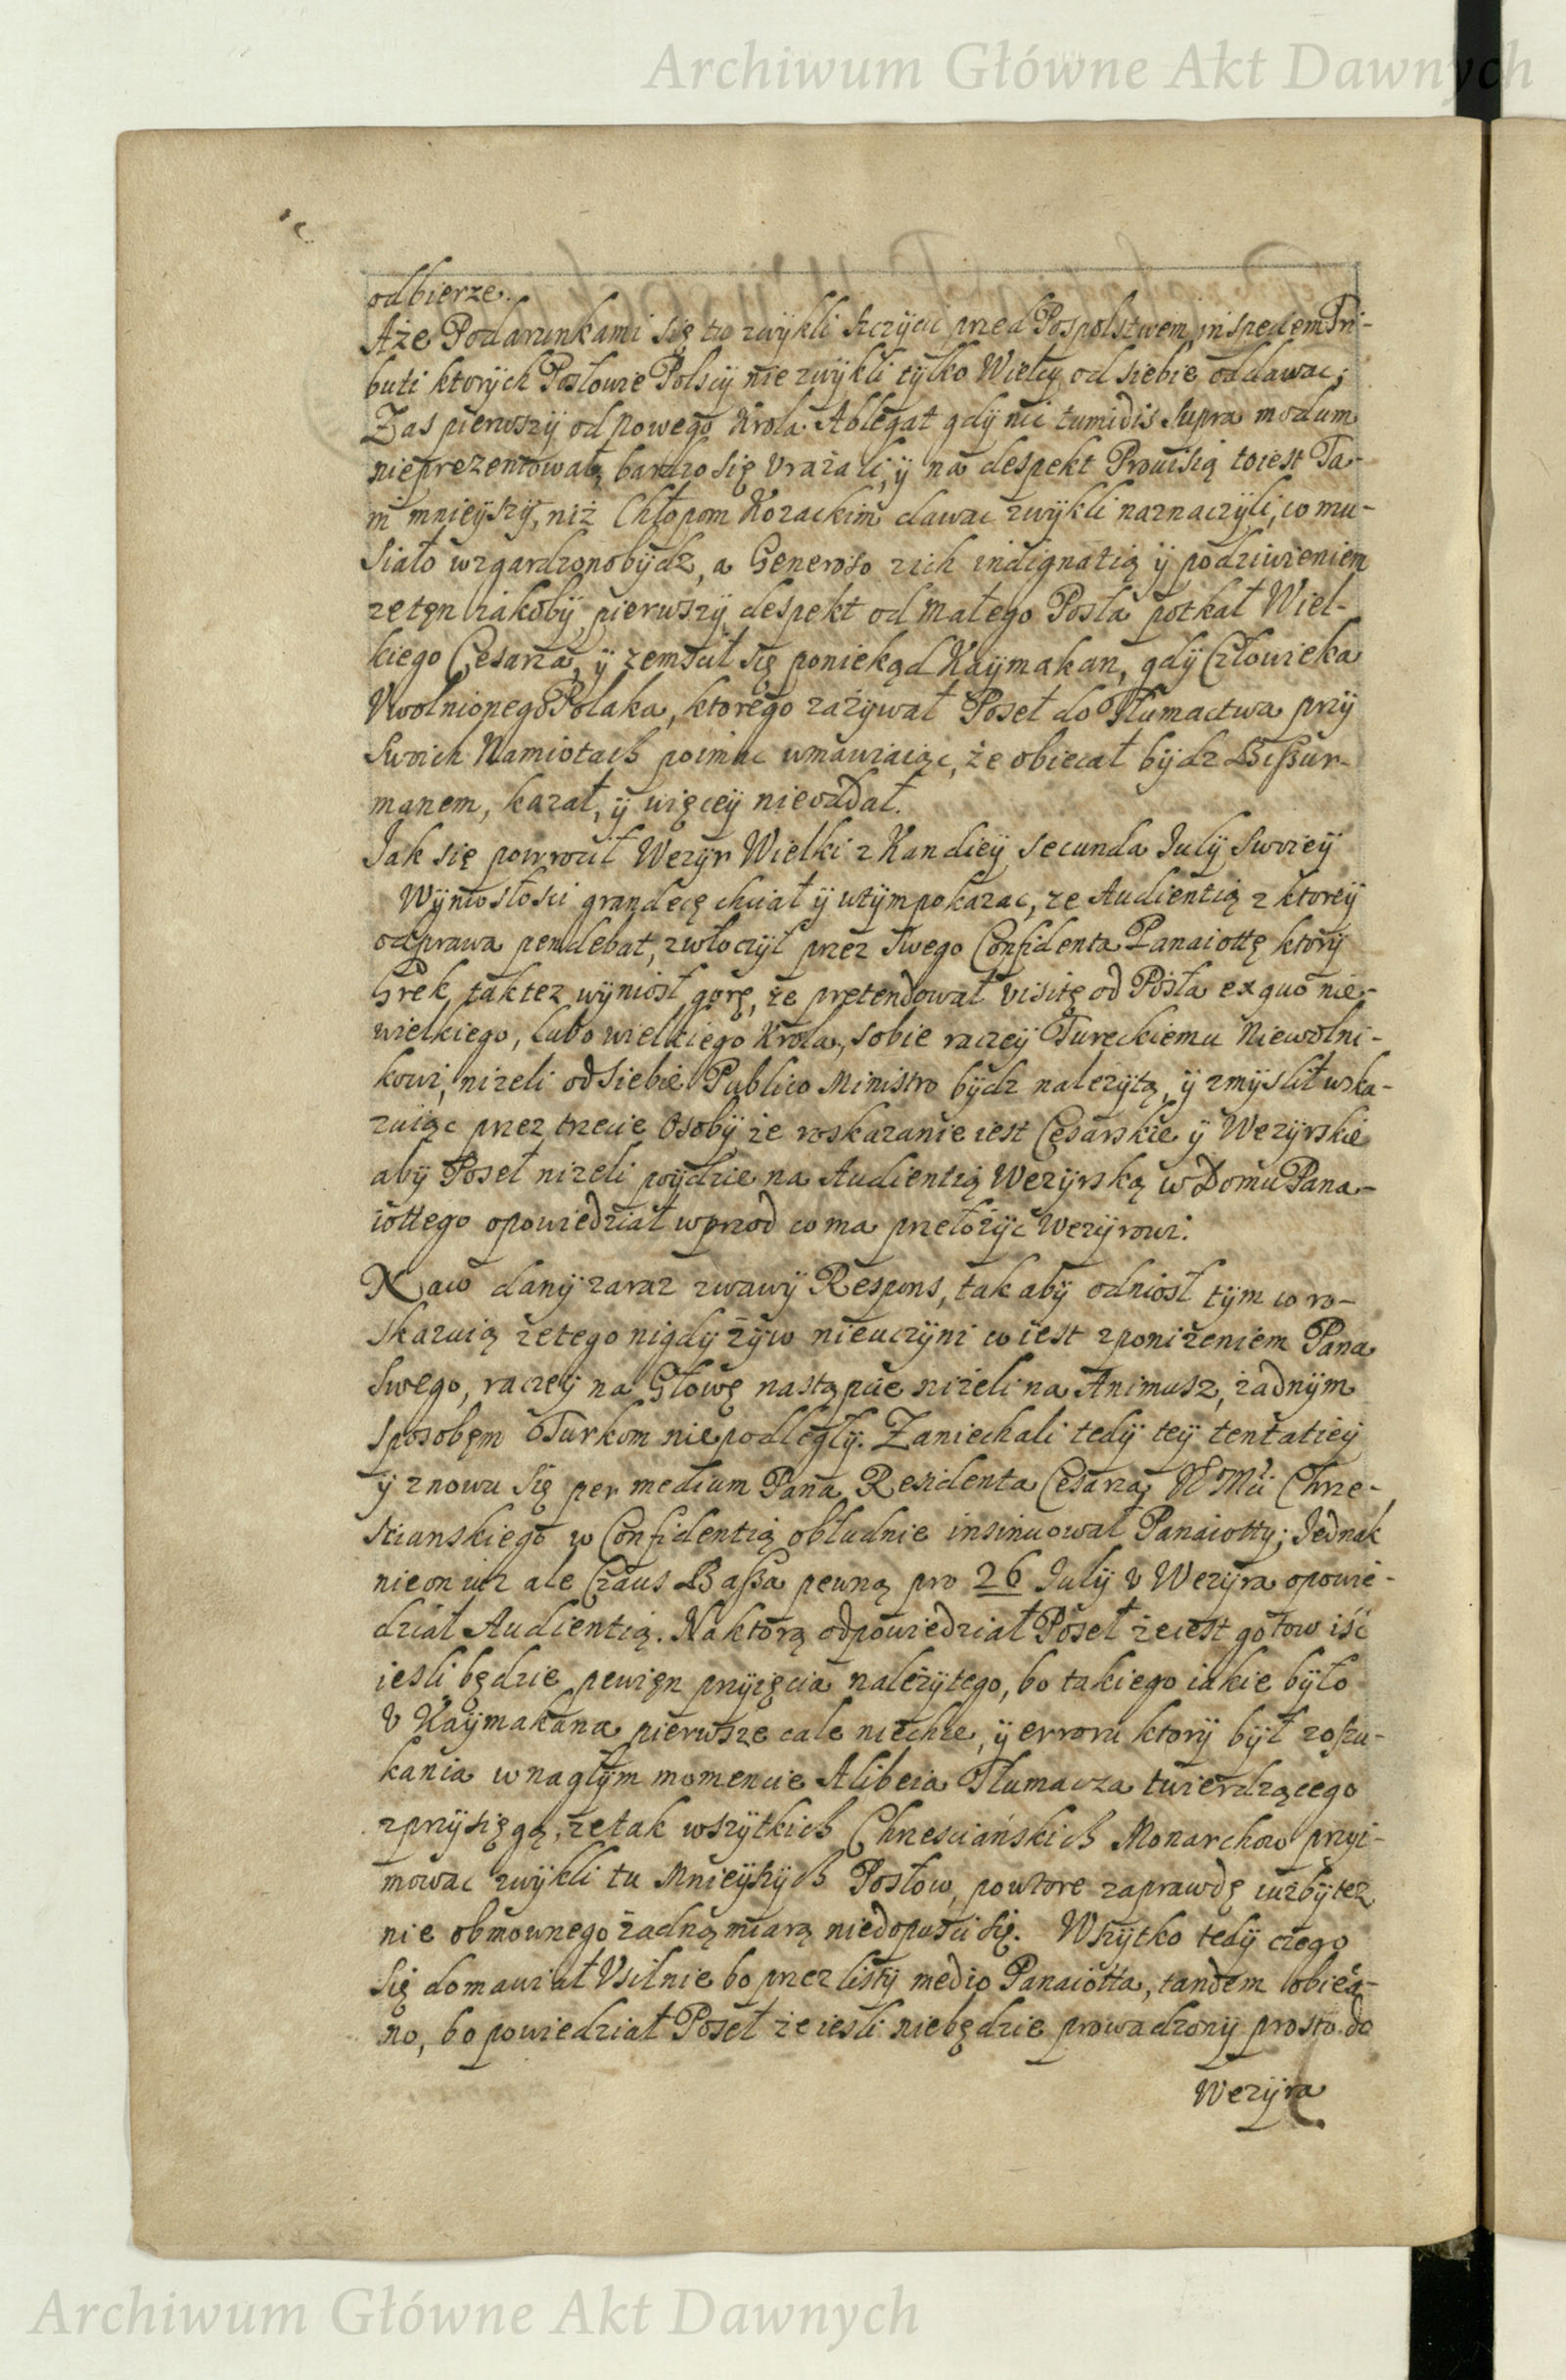 Archiwum Główne Akt Dawnych
odbierze.
Aże Podarunkami się tu zwÿkli szczÿcic przed Pospolstwem in speciem Tri-
buti ktorÿch Posłowie Polscÿ nie zwÿkli tÿlko Wielcy od siebie oddawac;
Zas pierwszÿ od nowego Krola Ablegat gdÿ nic tumidis supra modum
nieprezentował, bardzo się vrazali, ÿ na despekt Prouisią toiest Ta-
in mnieÿszÿ, niż Chłopom Kozackim dawac zwÿkli naznaczÿli, co mu-
siało wzgardzono bÿdz, a Generoso z ich indignatią ÿ podziwieniem
ze ten iakobÿ pierwszÿ despekt od małego Posła potkał Wiel-
kiego Cesarza, ÿ zemscił się poniekąd Kaÿmakan, gdÿ Człowieka
Vwolnionego Polaka, ktorego zazÿwał Poseł do Tłumactwa przÿ
swoich Namiotach poimac wmawiaiąc, że obiecał bÿdz Bissur-
manem, kazał, ÿ więceÿ nie oddał.
Jak się powrocił Wezÿr Wielki z Kandieÿ secunda Julÿ swoieÿ
Wÿniosłosci grandecę chciał ÿ w tÿm pokazac, ze Audientią z ktoreÿ
odprawa pendebat, zwłoczÿł przez swego Confidenta Panaiottę ktorÿ
Grek, tak tez wÿniosł gorę, że pretendował visitę od Posła ex quo nie-
wielkiego, lubo wielkiego Krola, sobie raczeÿ Tureckiemu Niewolni-
kowi, nizeli od siebie Publico Ministro bÿdz nalezÿtą, ÿ zmÿslił wska-
zuiąc przez trzecie Osobÿ że roskazanie iest Cesarskie ÿ Wezÿrskie
abÿ Poseł nizeli poÿdzie na Audientią Wezÿrską w Domu Pana-
iottego opowiedział wprzod co ma przełożÿc Wezÿrowi.
Na co danÿ zaraz zwawÿ Respons, tak abÿ odniosł tÿm co ro-
skazuią że tego nigdÿ żÿw nie uczÿni co iest z poniżeniem Pana
swego, raczeÿ na Głowę nastąpcie niżeli na Animusz, żadnÿm
sposobem Turkom niepodległÿ. Zaniechali tedÿ teÿ tentatieÿ
ÿ znowu się per medium Pana Residenta Cesarza JE Mci Chrze-
scianskiego w Confidentią obłudnie insinuował Panaiottÿ; Jednak
nie on iuz ale Czaus Bassa pewną pro 26 Julÿ v Wezÿra opowie-
dział Audientią. Na ktorą odpowiedział Poseł że iest gotow iść
iesli będzie pewien przÿięcia należÿtego, bo takiego iakie bÿło
v Kaÿmakana pierwsze cale niechce, ÿ erroru ktorÿ bÿł z oszu-
kania w nagłÿm momencie Alibeia Tłumacza twierdzącego
z przÿsięgą, że tak wszÿtkich Chrescianskich Monarchow przÿi-
mowac zwÿkli tu Mnieÿszÿch Posłow, powtore zaprawdę iużbÿ tez
nie obmownego żadną miarą niedopusci się. Wszÿtko tedÿ czego
się domawiał Vsilnie bo przez listÿ medio Panaiotta, tandem obieca-
no, bo powiedział Poseł że iesli niebędzie prowadzonÿ prosto do
Wezÿra
Archiwum Główne Akt Dawnych